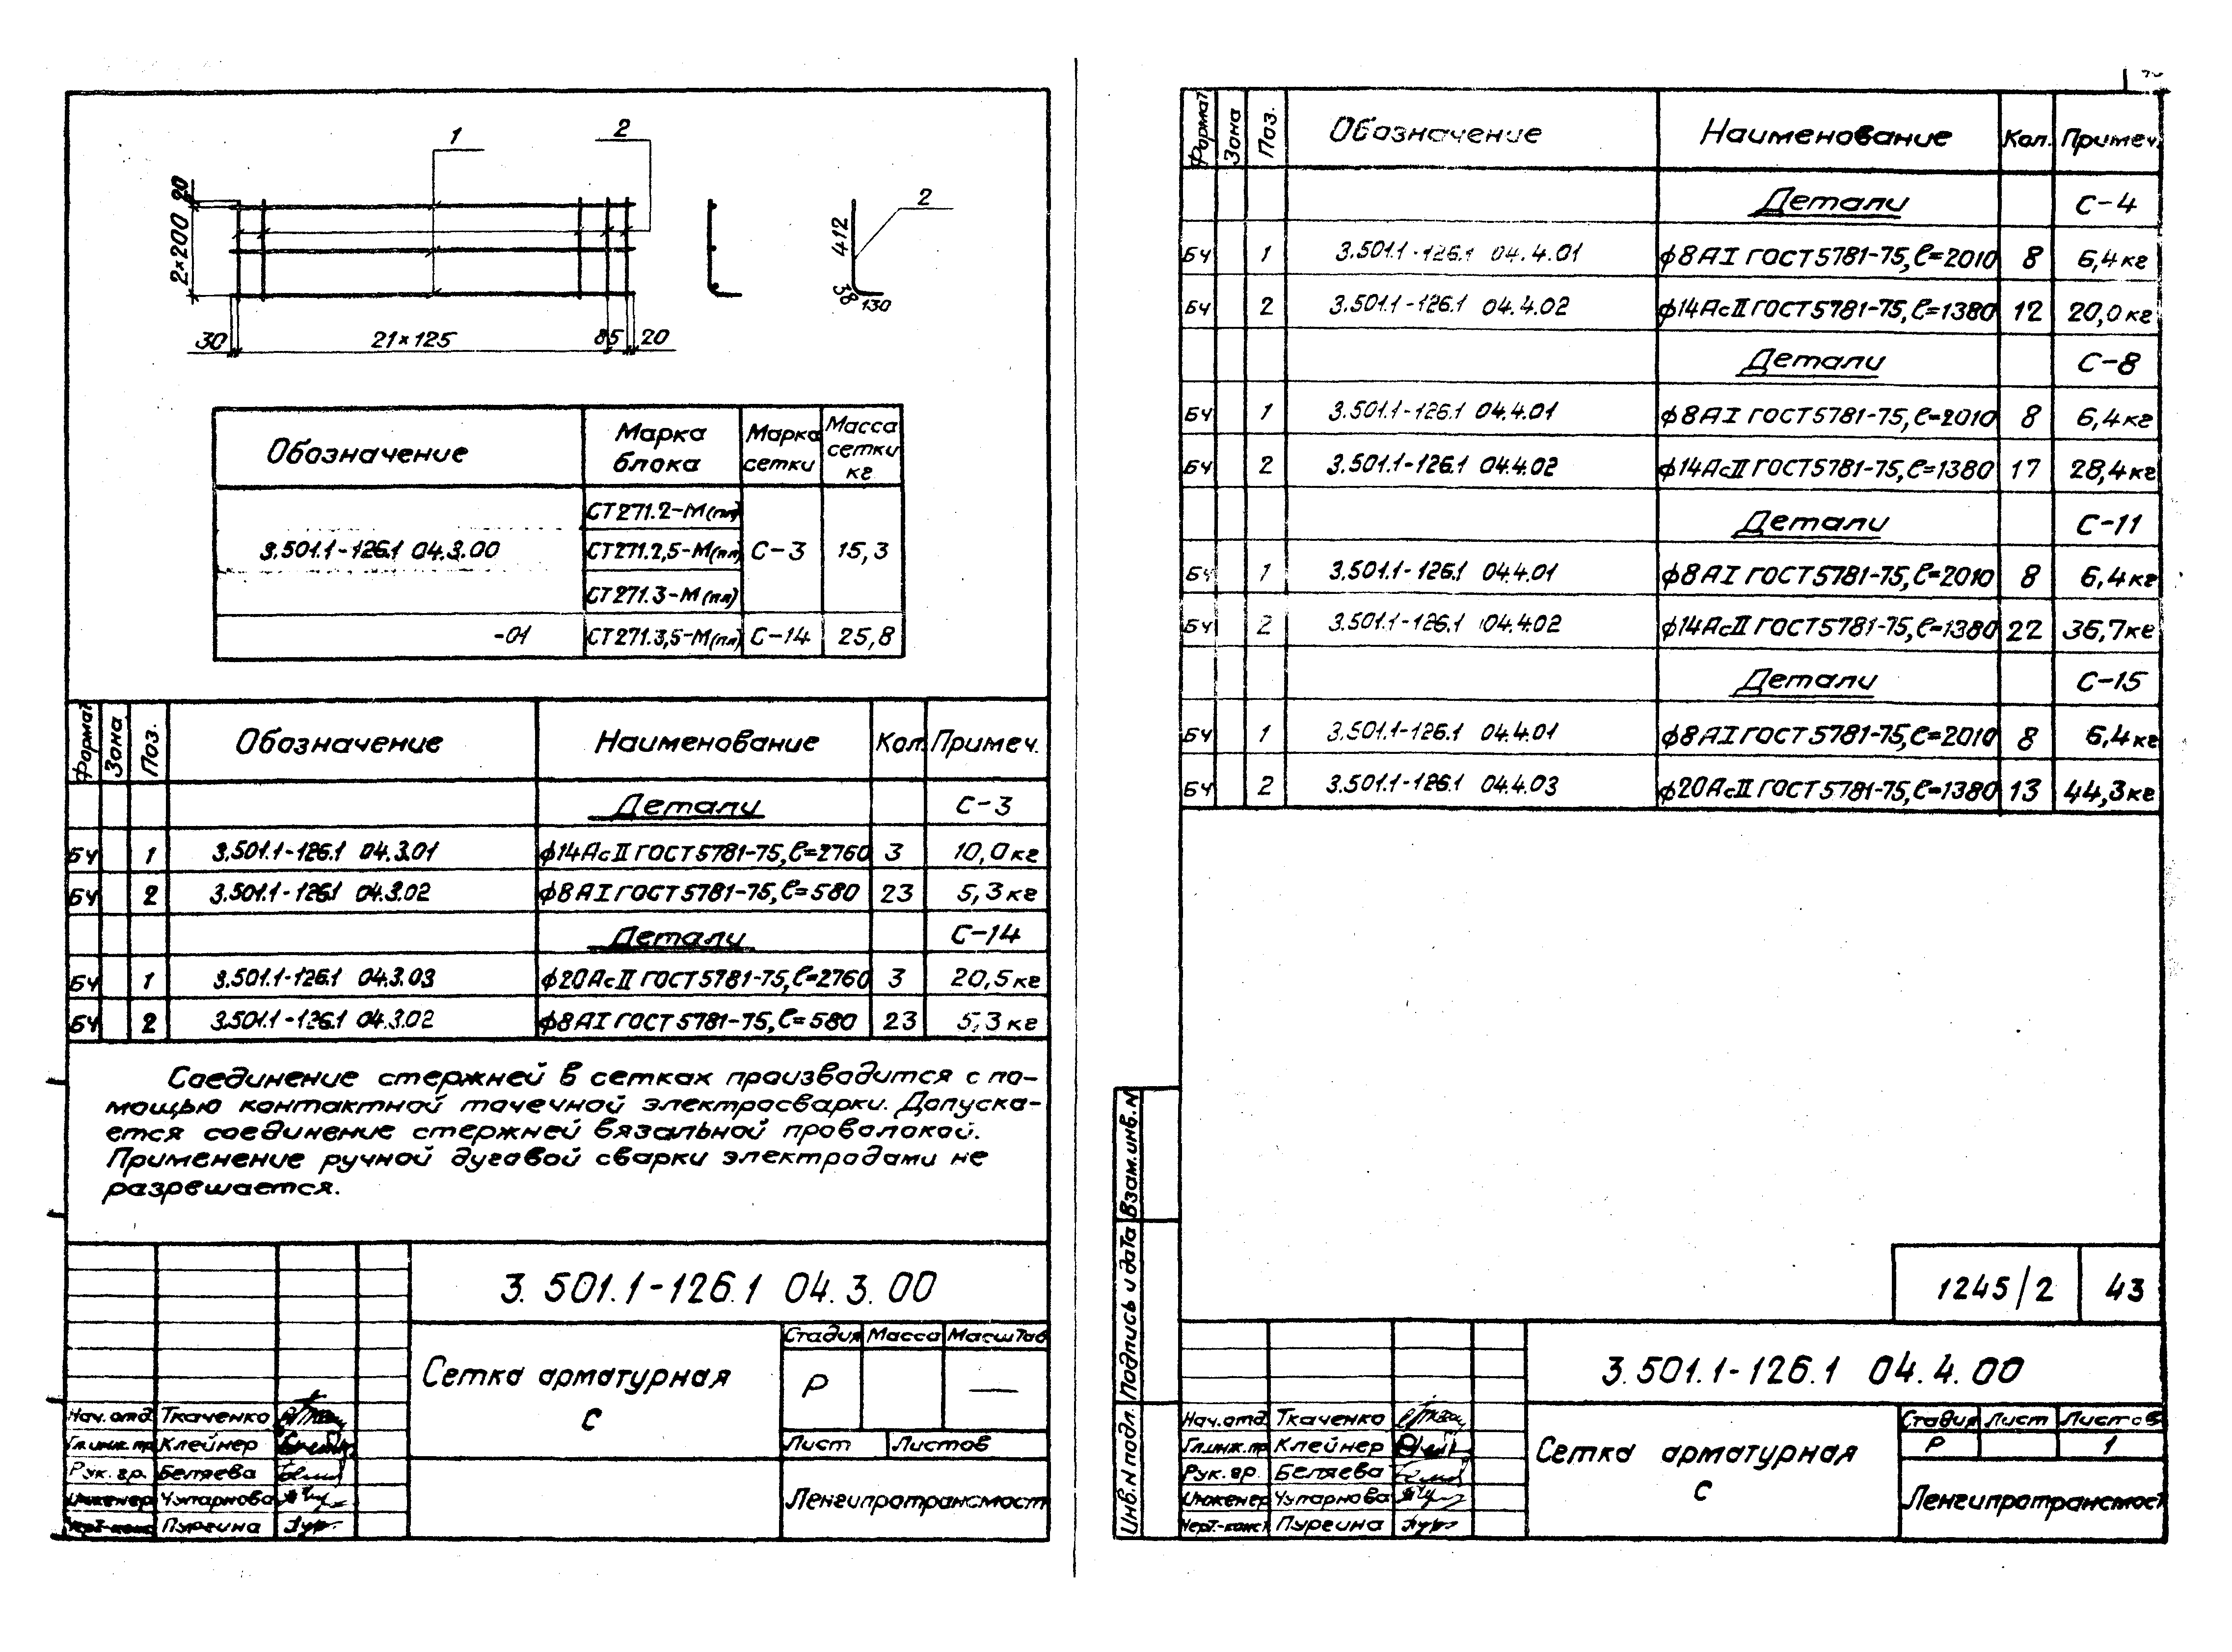 1
2
20
2×200
30
21×125
85
20
412
38
130
2
Обозначение Марка блока Марка сетки Масса сетки кг
СТ271.2-М(пл)
3.501.1-126.1 04.3.00 СТ271.2,5-М(пл) С-3 15,3
СТ271.3-М(пл)
-01 СТ271.3,5-М(пл) С-14 25,8
Формат Зона Поз. Обозначение Наименование Кол. Примеч.
Детали С-3
БЧ 1 3.501.1-126.1 04.3.01 ф14АсII ГОСТ5781-75, ℓ=2760 3 10,0кг
БЧ 2 3.501.1-126.1 04.3.02 ф8АI ГОСТ5781-75, ℓ=580 23 5,3кг
Детали С-14
БЧ 1 3.501.1-126.1 04.3.03 ф20АсII ГОСТ5781-75, ℓ=2760 3 20,5кг
БЧ 2 3.501.1-126.1 04.3.02 ф8АI ГОСТ5781-75, ℓ=580 23 5,3кг
Соединение стержней в сетках производится с по-
мощью контактной точечной электросварки. Допуска-
ется соединение стержней вязальной проволокой.
Применение ручной дуговой сварки электродами не
разрешается.
3.501.1-126.1 04.3.00
Сетка арматурная
С
Стадия Масса Масштаб
Р —
Лист Листов
Ленгипротрансмост
Нач.отд. Ткаченко
Гл.инж.пр. Клейнер
Рук.гр. Беляева
Инженер Чупарнова
Черт.-конст. Пургина
Формат Зона Поз. Обозначение Наименование Кол. Примеч.
Детали С-4
БЧ 1 3.501.1-126.1 04.4.01 ф8АI ГОСТ5781-75, ℓ=2010 8 6,4кг
БЧ 2 3.501.1-126.1 04.4.02 ф14АсII ГОСТ5781-75, ℓ=1380 12 20,0кг
Детали С-8
БЧ 1 3.501.1-126.1 04.4.01 ф8АI ГОСТ5781-75, ℓ=2010 8 6,4кг
БЧ 2 3.501.1-126.1 04.4.02 ф14АсII ГОСТ5781-75, ℓ=1380 17 28,4кг
Детали С-11
БЧ 1 3.501.1-126.1 04.4.01 ф8АI ГОСТ5781-75, ℓ=2010 8 6,4кг
БЧ 2 3.501.1-126.1 04.4.02 ф14АсII ГОСТ5781-75, ℓ=1380 22 36,7кг
Детали С-15
БЧ 1 3.501.1-126.1 04.4.01 ф8АI ГОСТ5781-75, ℓ=2010 8 6,4кг
БЧ 2 3.501.1-126.1 04.4.03 ф20АсII ГОСТ5781-75, ℓ=1380 13 44,3кг
Взам.инв.N
Подпись и дата
Инв.N подл.
1245/2 43
3.501.1-126.1 04.4.00
Сетка арматурная
С
Стадия Лист Листов
Р 1
Ленгипротрансмост
Нач.отд. Ткаченко
Гл.инж.пр. Клейнер
Рук.гр. Беляева
Инженер Чупарнова
Черт.-конст. Пургина